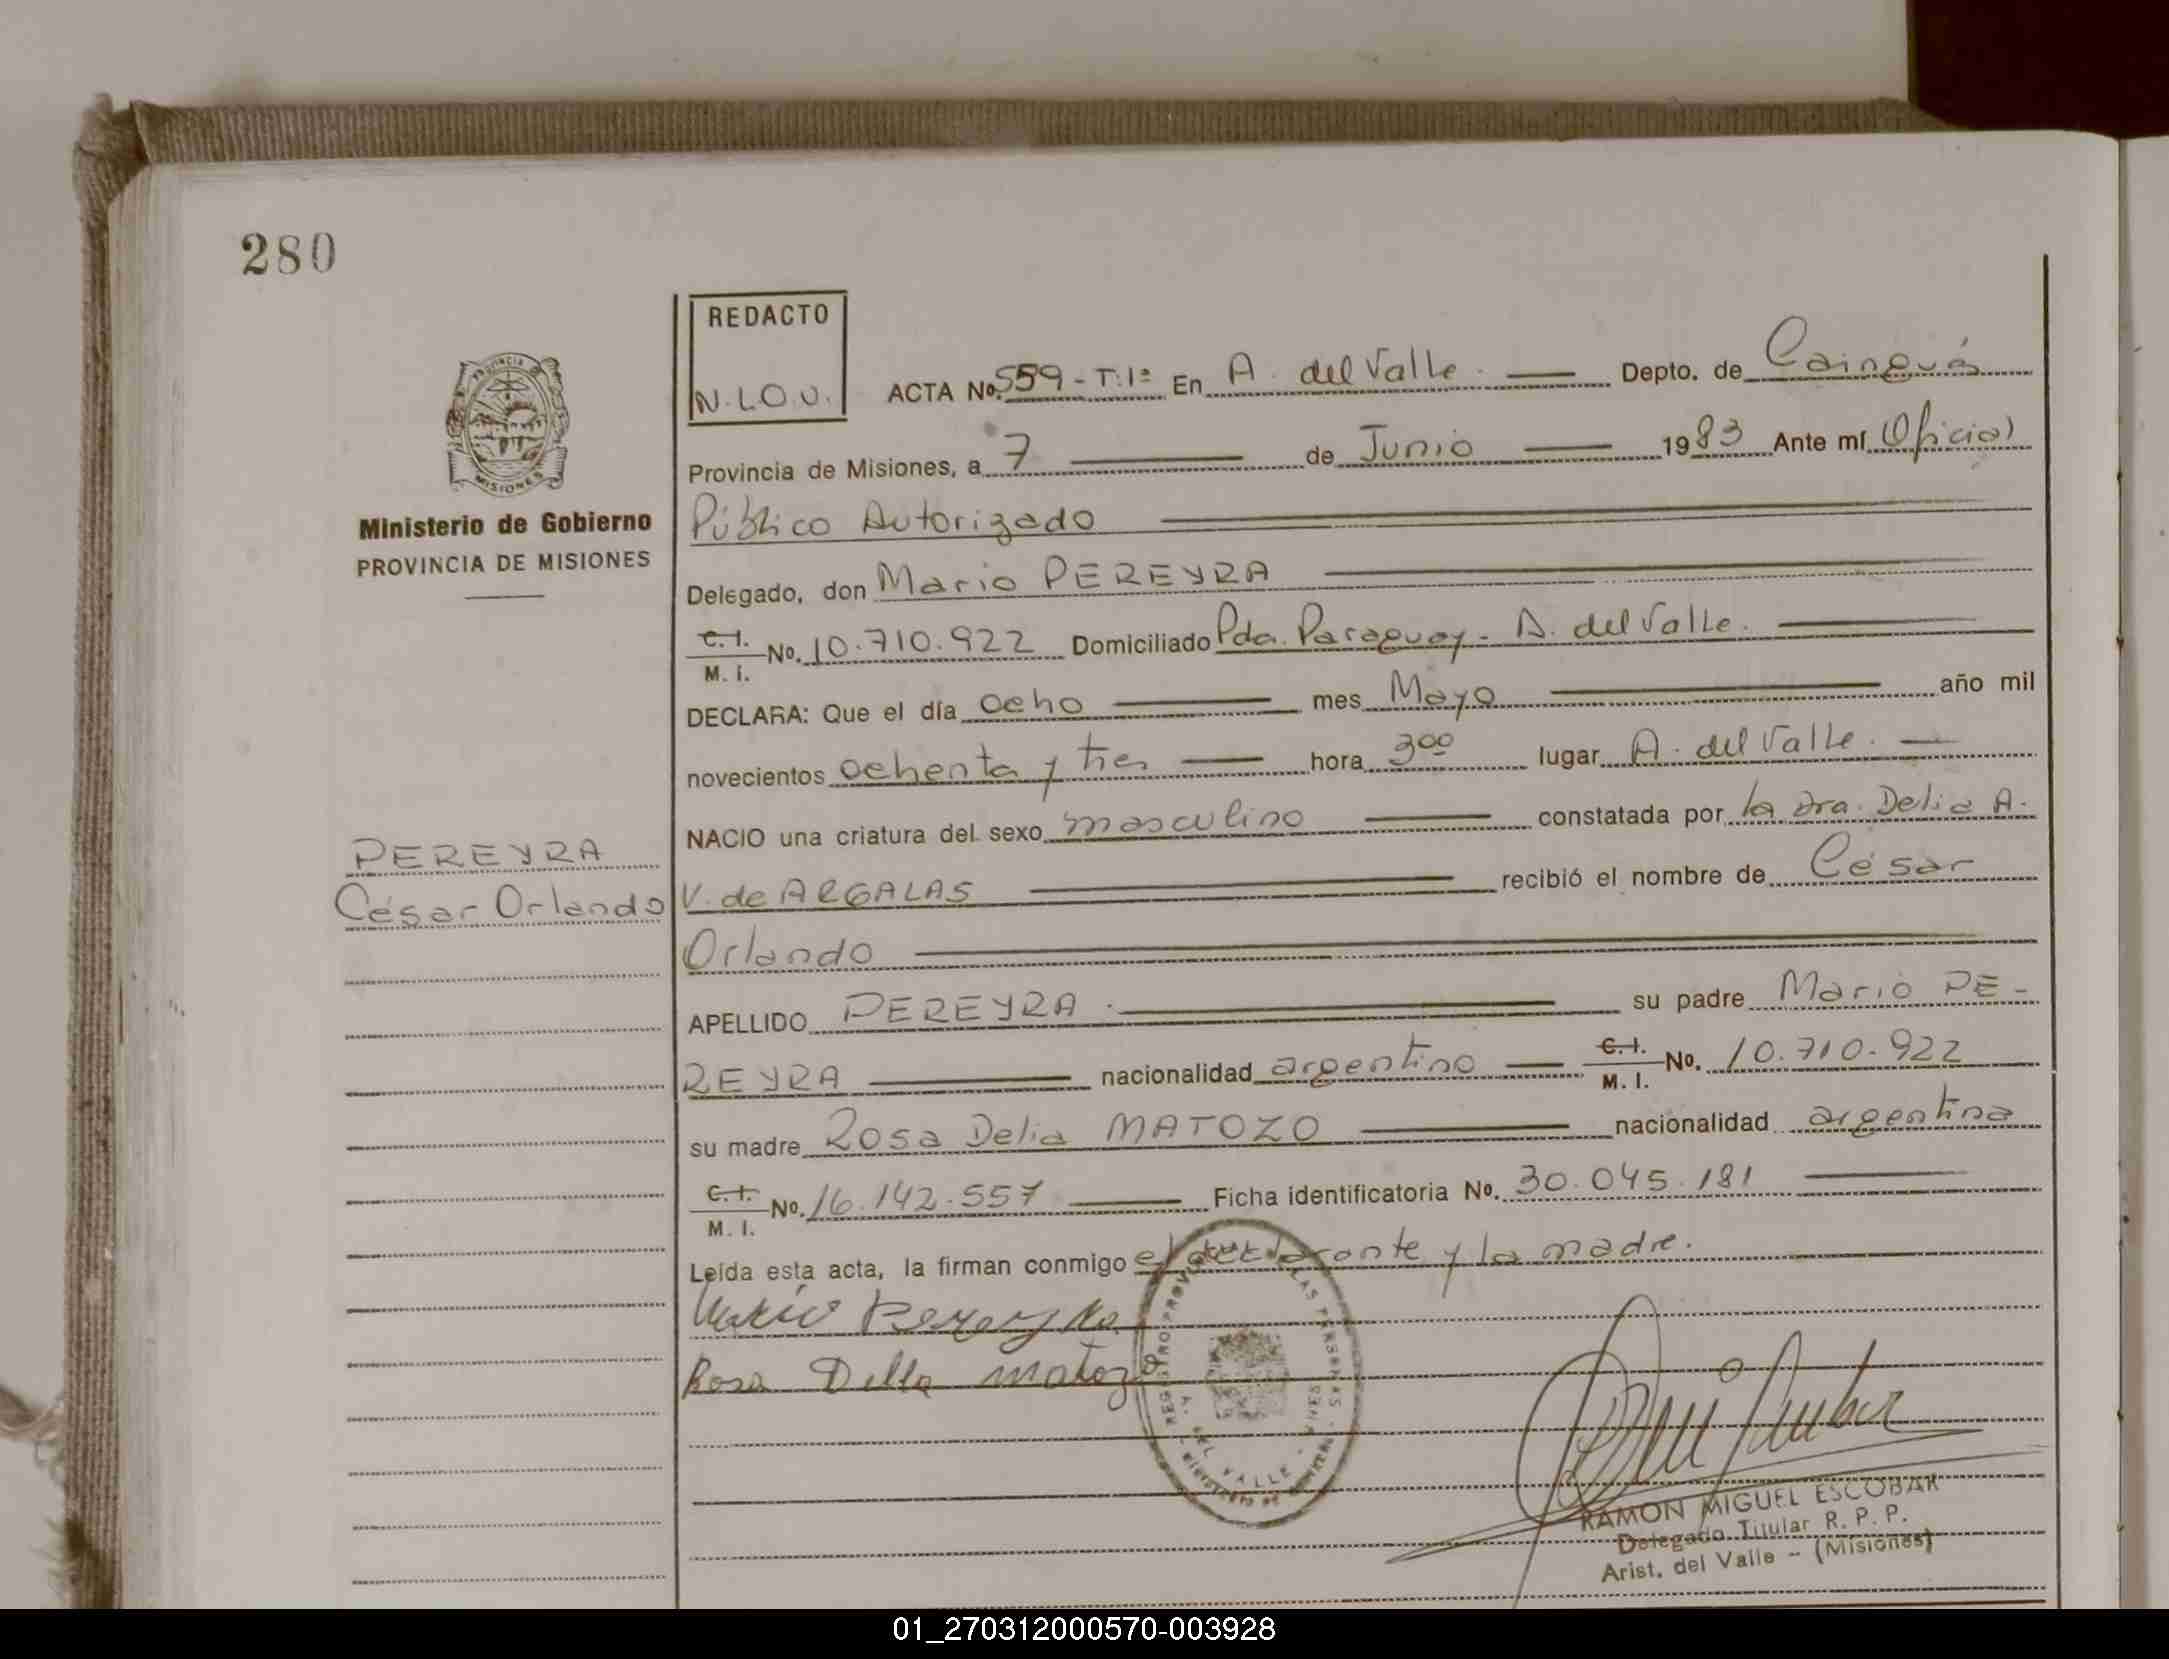 280
REDACTO
N.L.O.U.
PROVINCIA DE
MISIONES
Ministerio de Gobierno
PROVINCIA DE MISIONES
PEREYRA
César Orlando
ACTA No. 559-T:1º En A. del Valle. Depto. de Cainguás
Provincia de Misiones, a 7 de Junio 1983 Ante mí Oficial
Público Autorizado
Delegado, don Mario PEREYRA
C. I. M. I. No. 10.710.922 Domiciliado Pda. Paraguay - A. del Valle.
DECLARA: Que el día ocho mes Mayo año mil
novecientos ochenta y tres hora 3oo lugar A. del Valle.
NACIO una criatura del sexo masculino constatada por la Dra. Delia A.
V. de ARGALAS recibió el nombre de César
Orlando
APELLIDO PEREYRA su padre Mario PE-
REYRA nacionalidad argentino C. I. M. I. No. 10.710.922
su madre Rosa Delia MATOZO nacionalidad argentina
C. I. M. I. No. 16.142.557 Ficha identificatoria No. 30.045.181
Leída esta acta, la firman conmigo el declarante y la madre.
Mario Pereyra
Rosa Delia Matozo
A. DEL VALLE
RAMON MIGUEL ESCOBAR
Delegado Titular R. P. P.
Arist. del Valle - (Misiones)
01_270312000570-003928